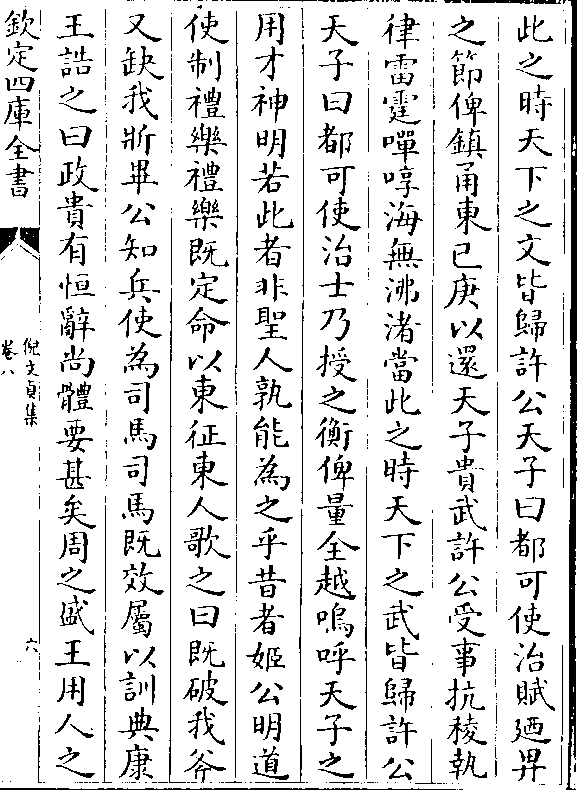 此之時天下之文皆歸許公天子曰都可使治賦廼畀
之節俾鎮甬東已庚以還天子貴武許公受事抗稜執
律雷霆嘽啍海無沸渚當此之時天下之武皆歸許公
天子曰都可使治士乃授之衡俾量全越嗚呼天子之
用才神明若此者非聖人孰能為之乎昔者姬公明道
使制禮樂禮樂既定命以東征東人歌之曰既破我斧
又缺我斨畢公知兵使為司馬司馬既效屬以訓典康
王誥之曰政貴有恒辭尚體要甚矣周之盛王用人之
欽定四庫全書
倪文貞集
卷八
六